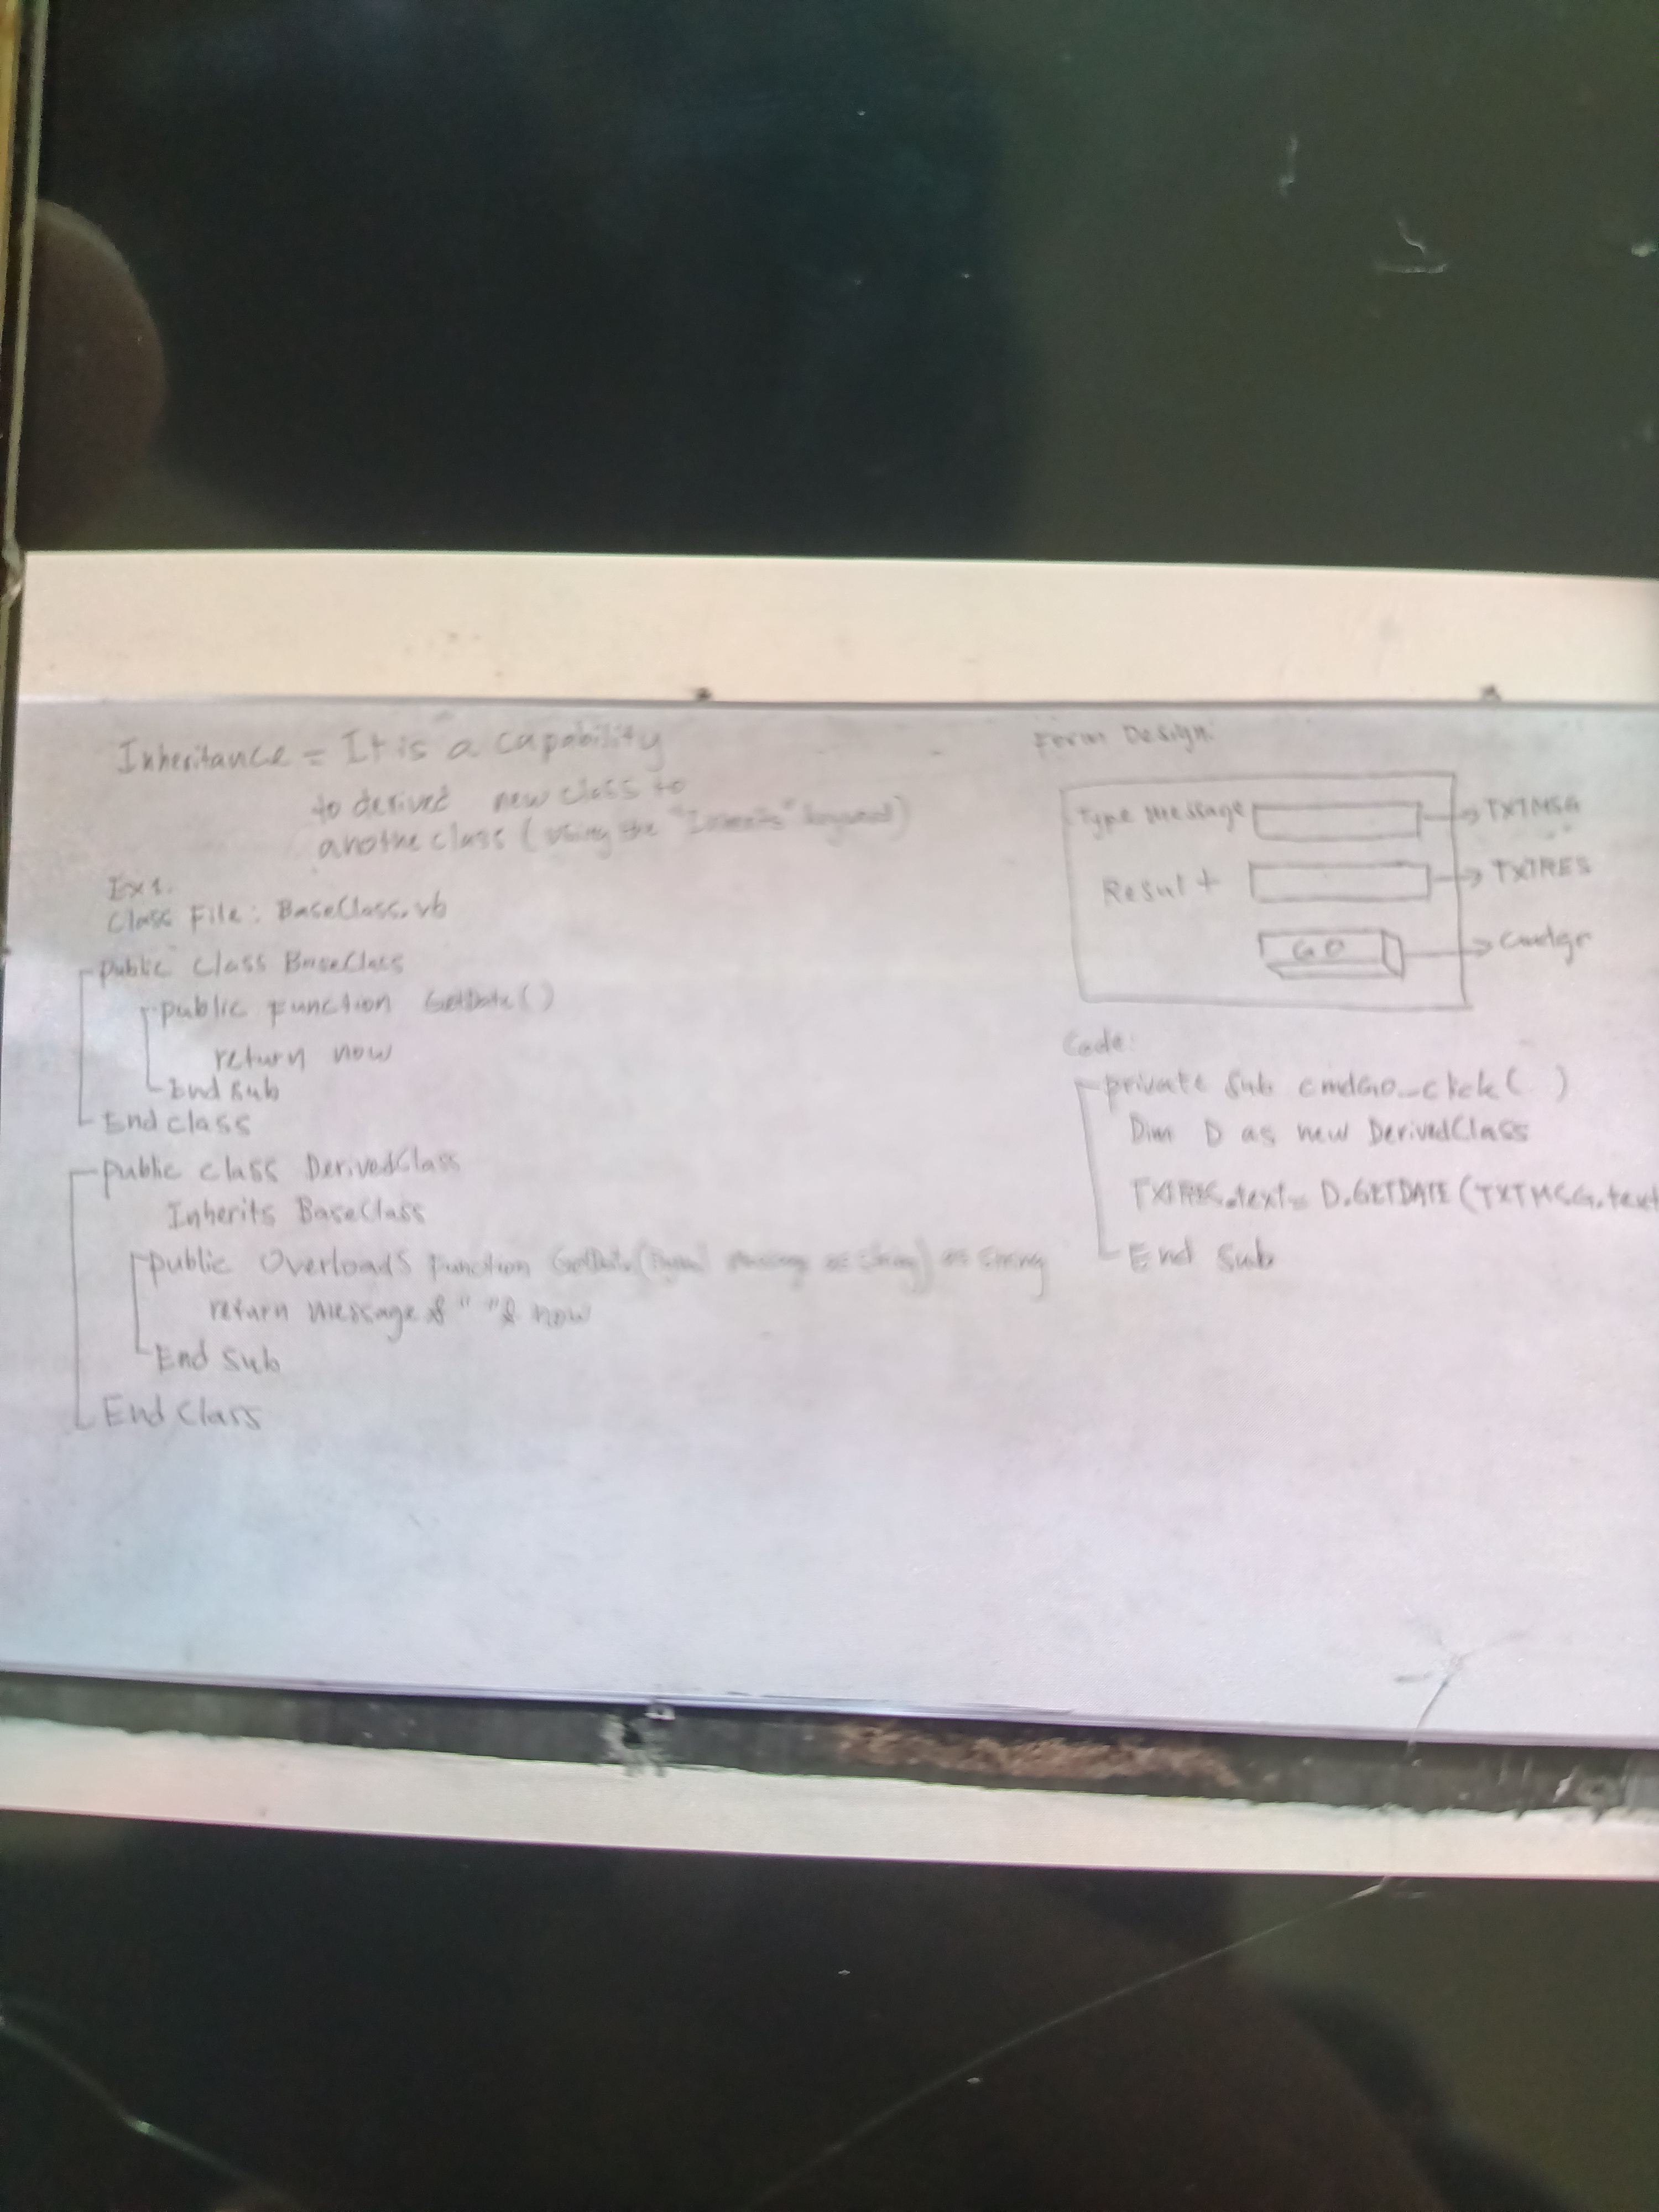 Inheritance = It is a capability
to derived new class to
anothe class (using the "Inherits" keyword)
Ex1.
Class File: BaseClass.vb
public class BaseClass
public function GetDate()
return now
End sub
End class
public class DerivedClass
Inherits BaseClass
public Overloads function GetDate( message as string) as string
return message & " " & now
End Sub
End Class
Form Design:
Type message
TXTMSG
Result
TXTRES
GO
Cmdgo
Code:
private sub cmdGO_click( )
Dim D as new DerivedClass
TXTRES.text= D.GETDATE(TXTMSG.text
End Sub